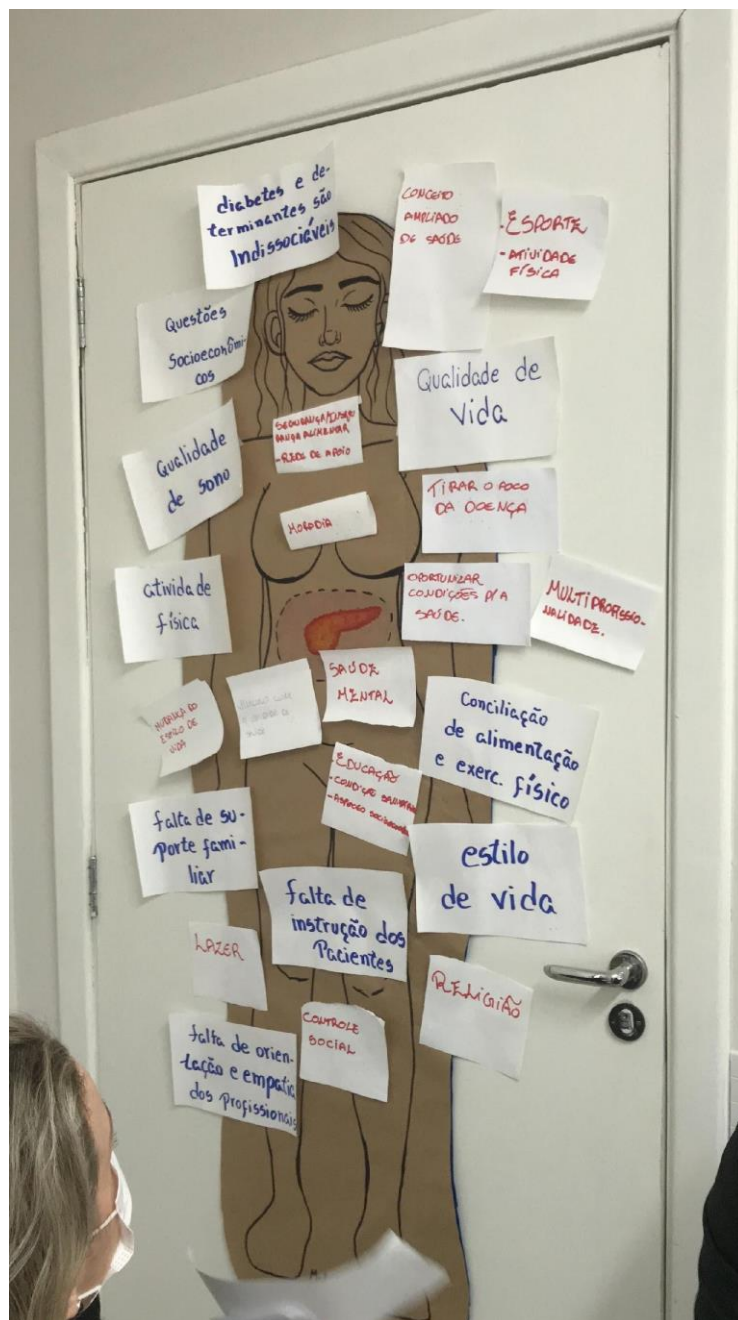 diabetes e de-
terminantes são
Indissociáveis
CONCEITO
AMPLIADO
DE SAÚDE
- ESPORTE
- ATIVIDADE
FÍSICA
Questões
Socioeconômi-
cos
Qualidade de
vida
SEGURANÇA/INSEGU
RANÇA ALIMENTAR
- REDE DE APOIO
Qualidade
de sono
TIRAR O FOCO
DA DOENÇA
MORADIA
atividade
física
OPORTUNIZAR
CONDIÇÕES P/A
SAÚDE.
MULTIPROFISSIO-
NALIDADE.
SAÚDE
MENTAL
MUDANÇA DO
ESTILO DE
VIDA
Conciliação
de alimentação
e exerc. físico
- EDUCAÇÃO
- CONDIÇÃO
- ASPECTO
falta de su-
porte fami-
liar
estilo
de vida
falta de
instrução dos
Pacientes
LAZER
RELIGIÃO
CONTROLE
SOCIAL
falta de orien-
tação e empatia
dos profissionais